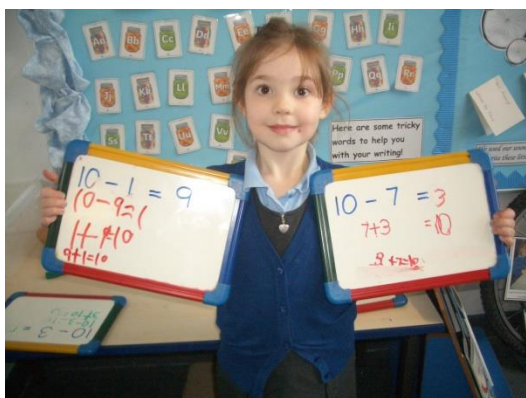 Aa
Bb
Cc
Dd
Hh
Ii
Jj
Kk
Ll
Pp
Qq
Rr
Ss
Tt
Uu
Vv
Here are some tricky
words to help you
with your writing!
10 - 1 = 9
10 - 9 = 1
1 + 9 = 10
9 + 1 = 10
10 - 7 = 3
7 + 3 = 10
10 - 3 =